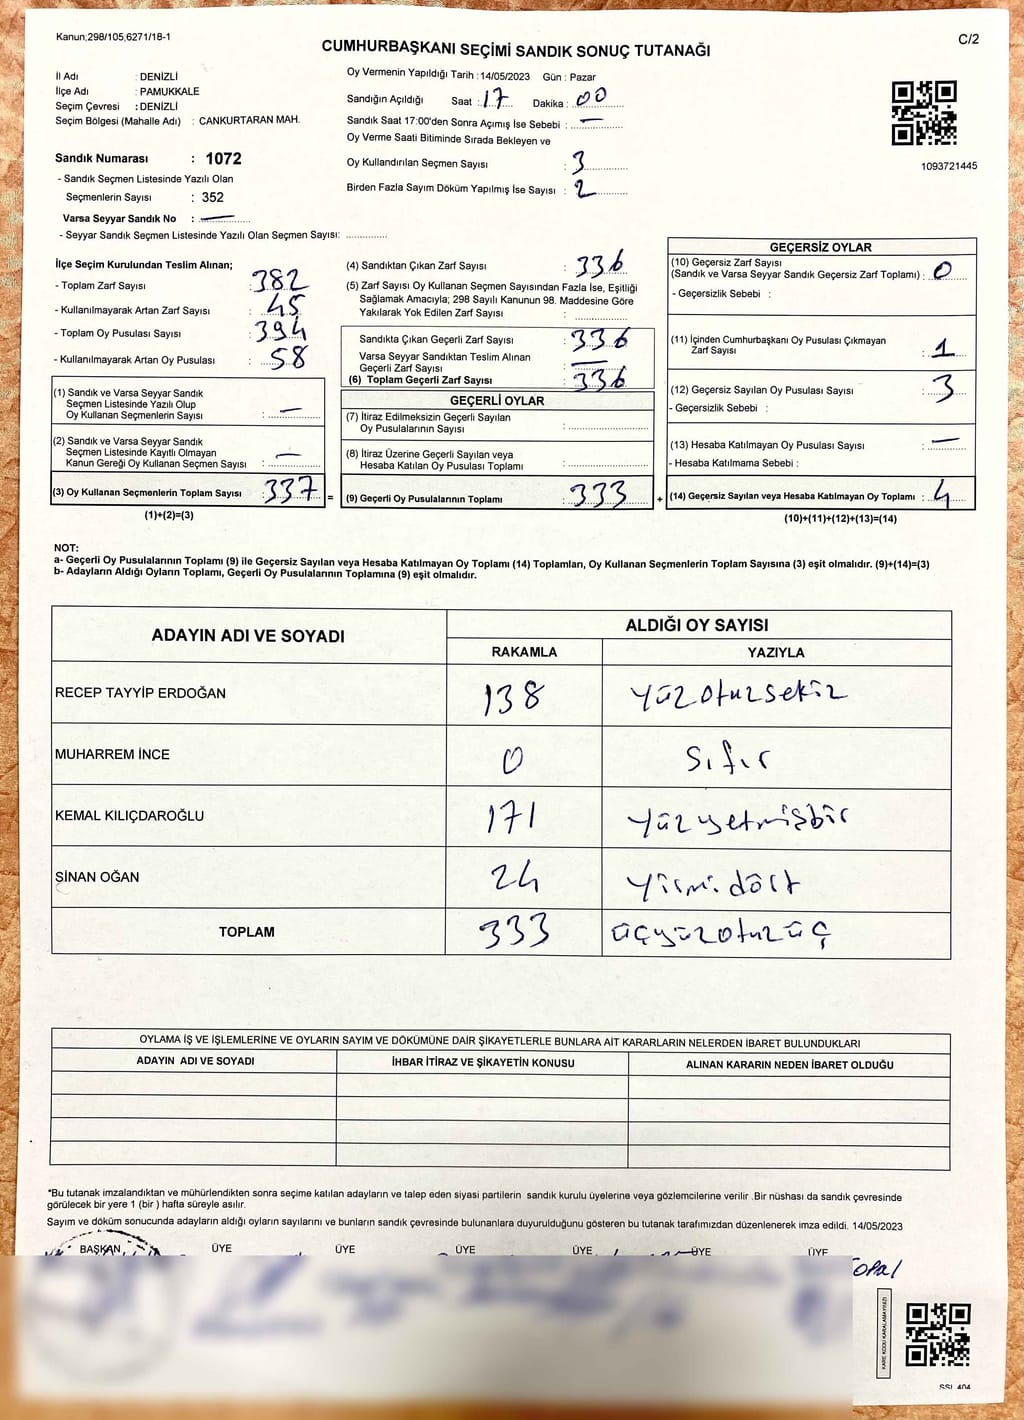 Kanun;298/105,6271/18-1
CUMHURBAŞKANI SEÇİMİ SANDIK SONUÇ TUTANAĞI
C/2
İl Adı : DENİZLİ
İlçe Adı : PAMUKKALE
Seçim Çevresi : DENİZLİ
Seçim Bölgesi (Mahalle Adı) : CANKURTARAN MAH.
Sandık Numarası : 1072
- Sandık Seçmen Listesinde Yazılı Olan
Seçmenlerin Sayısı : 352
Varsa Seyyar Sandık No : —
- Seyyar Sandık Seçmen Listesinde Yazılı Olan Seçmen Sayısı: ..............
Oy Vermenin Yapıldığı Tarih : 14/05/2023 Gün : Pazar
Sandığın Açıldığı Saat : 17 Dakika : 00
Sandık Saat 17:00'den Sonra Açımış İse Sebebi : —
Oy Verme Saati Bitiminde Sırada Bekleyen ve
Oy Kullandırılan Seçmen Sayısı : 3
Birden Fazla Sayım Döküm Yapılmış İse Sayısı : 2
1093721445
İlçe Seçim Kurulundan Teslim Alınan;
- Toplam Zarf Sayısı : 382
- Kullanılmayarak Artan Zarf Sayısı : 45
- Toplam Oy Pusulası Sayısı : 394
- Kullanılmayarak Artan Oy Pusulası : 58
(1) Sandık ve Varsa Seyyar Sandık
Seçmen Listesinde Yazılı Olup
Oy Kullanan Seçmenlerin Sayısı : —
(2) Sandık ve Varsa Seyyar Sandık
Seçmen Listesinde Kayıtlı Olmayan
Kanun Gereği Oy Kullanan Seçmen Sayısı : —
(3) Oy Kullanan Seçmenlerin Toplam Sayısı : 337 =
(1)+(2)=(3)
(4) Sandıktan Çıkan Zarf Sayısı : 336
(5) Zarf Sayısı Oy Kullanan Seçmen Sayısından Fazla İse, Eşitliği
Sağlamak Amacıyla; 298 Sayılı Kanunun 98. Maddesine Göre
Yakılarak Yok Edilen Zarf Sayısı : ..............
Sandıkta Çıkan Geçerli Zarf Sayısı : 336
Varsa Seyyar Sandıktan Teslim Alınan
Geçerli Zarf Sayısı : —
(6) Toplam Geçerli Zarf Sayısı : 336
GEÇERLİ OYLAR
(7) İtiraz Edilmeksizin Geçerli Sayılan
Oy Pusulalarının Sayısı : ..............
(8) İtiraz Üzerine Geçerli Sayılan veya
Hesaba Katılan Oy Pusulası Toplamı : ..............
(9) Geçerli Oy Pusulalarının Toplamı : 333 +
GEÇERSİZ OYLAR
(10) Geçersiz Zarf Sayısı
(Sandık ve Varsa Seyyar Sandık Geçersiz Zarf Toplamı) : 0
- Geçersizlik Sebebi :
(11) İçinden Cumhurbaşkanı Oy Pusulası Çıkmayan
Zarf Sayısı : 1
(12) Geçersiz Sayılan Oy Pusulası Sayısı : 3
- Geçersizlik Sebebi :
(13) Hesaba Katılmayan Oy Pusulası Sayısı : —
- Hesaba Katılmama Sebebi :
(14) Geçersiz Sayılan veya Hesaba Katılmayan Oy Toplamı : 4
(10)+(11)+(12)+(13)=(14)
NOT:
a- Geçerli Oy Pusulalarının Toplamı (9) ile Geçersiz Sayılan veya Hesaba Katılmayan Oy Toplamı (14) Toplamları, Oy Kullanan Seçmenlerin Toplam Sayısına (3) eşit olmalıdır. (9)+(14)=(3)
b- Adayların Aldığı Oyların Toplamı, Geçerli Oy Pusulalarının Toplamına (9) eşit olmalıdır.
ADAYIN ADI VE SOYADI ALDIĞI OY SAYISI
RAKAMLA YAZIYLA
RECEP TAYYİP ERDOĞAN 138 yüzotuzsekiz
MUHARREM İNCE 0 sıfır
KEMAL KILIÇDAROĞLU 171 yüzyetmişbir
SİNAN OĞAN 24 yirmidört
TOPLAM 333 üçyüzotuzüç
OYLAMA İŞ VE İŞLEMLERİNE VE OYLARIN SAYIM VE DÖKÜMÜNE DAİR ŞİKAYETLERLE BUNLARA AİT KARARLARIN NELERDEN İBARET BULUNDUKLARI
ADAYIN ADI VE SOYADI İHBAR İTİRAZ VE ŞİKAYETİN KONUSU ALINAN KARARIN NEDEN İBARET OLDUĞU
*Bu tutanak imzalandıktan ve mühürlendikten sonra seçime katılan adayların ve talep eden siyasi partilerin sandık kurulu üyelerine veya gözlemcilerine verilir .Bir nüshası da sandık çevresinde
görülecek bir yere 1 (bir ) hafta süreyle asılır.
Sayım ve döküm sonucunda adayların aldığı oyların sayılarını ve bunların sandık çevresinde bulunanlara duyurulduğunu gösteren bu tutanak tarafımızdan düzenlenerek imza edildi. 14/05/2023
BAŞKAN ÜYE ÜYE ÜYE ÜYE ÜYE ÜYE
KARE KODU KARALAMAYINIZ!
SSL 404